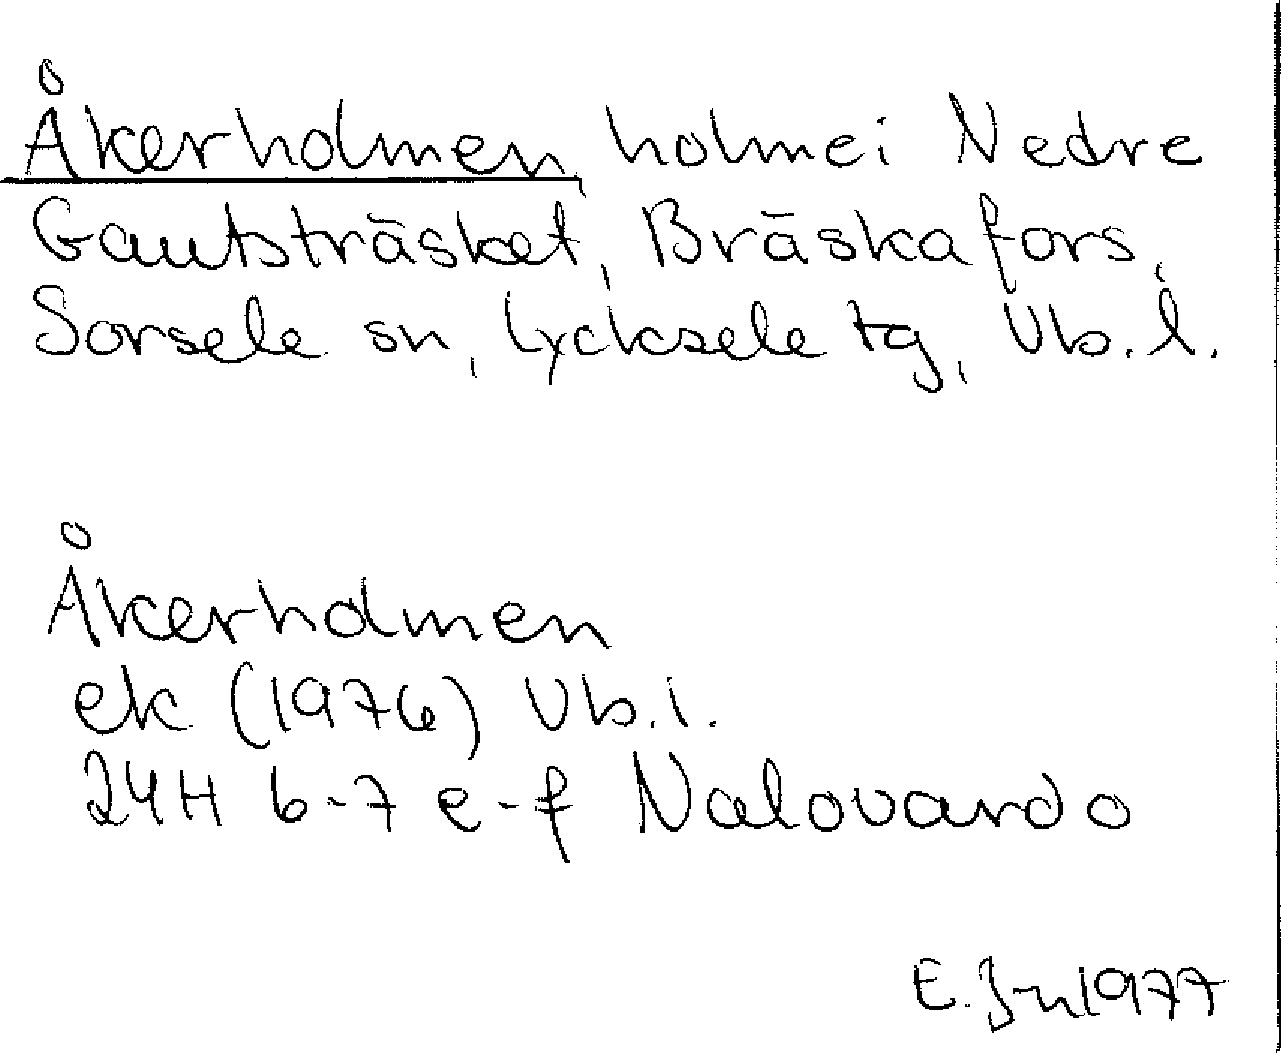 Åkerholmen holme i Nedre
Gautsträsket, Bräskafors,
Sorsele sn, Lycksele tg, Vb. l.
Åkerholmen
ek (1976) Vb. l.
24H 6-7 e-f Nalovardo
E. J-n 1977